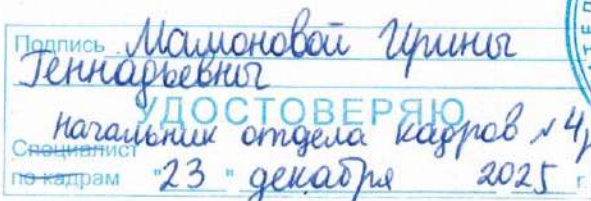 Подпись Мамоновой Ирины
Геннадьевны
УДОСТОВЕРЯЮ
начальник отдела кадров №4
Специалист
по кадрам "23" декабря 2025 г.